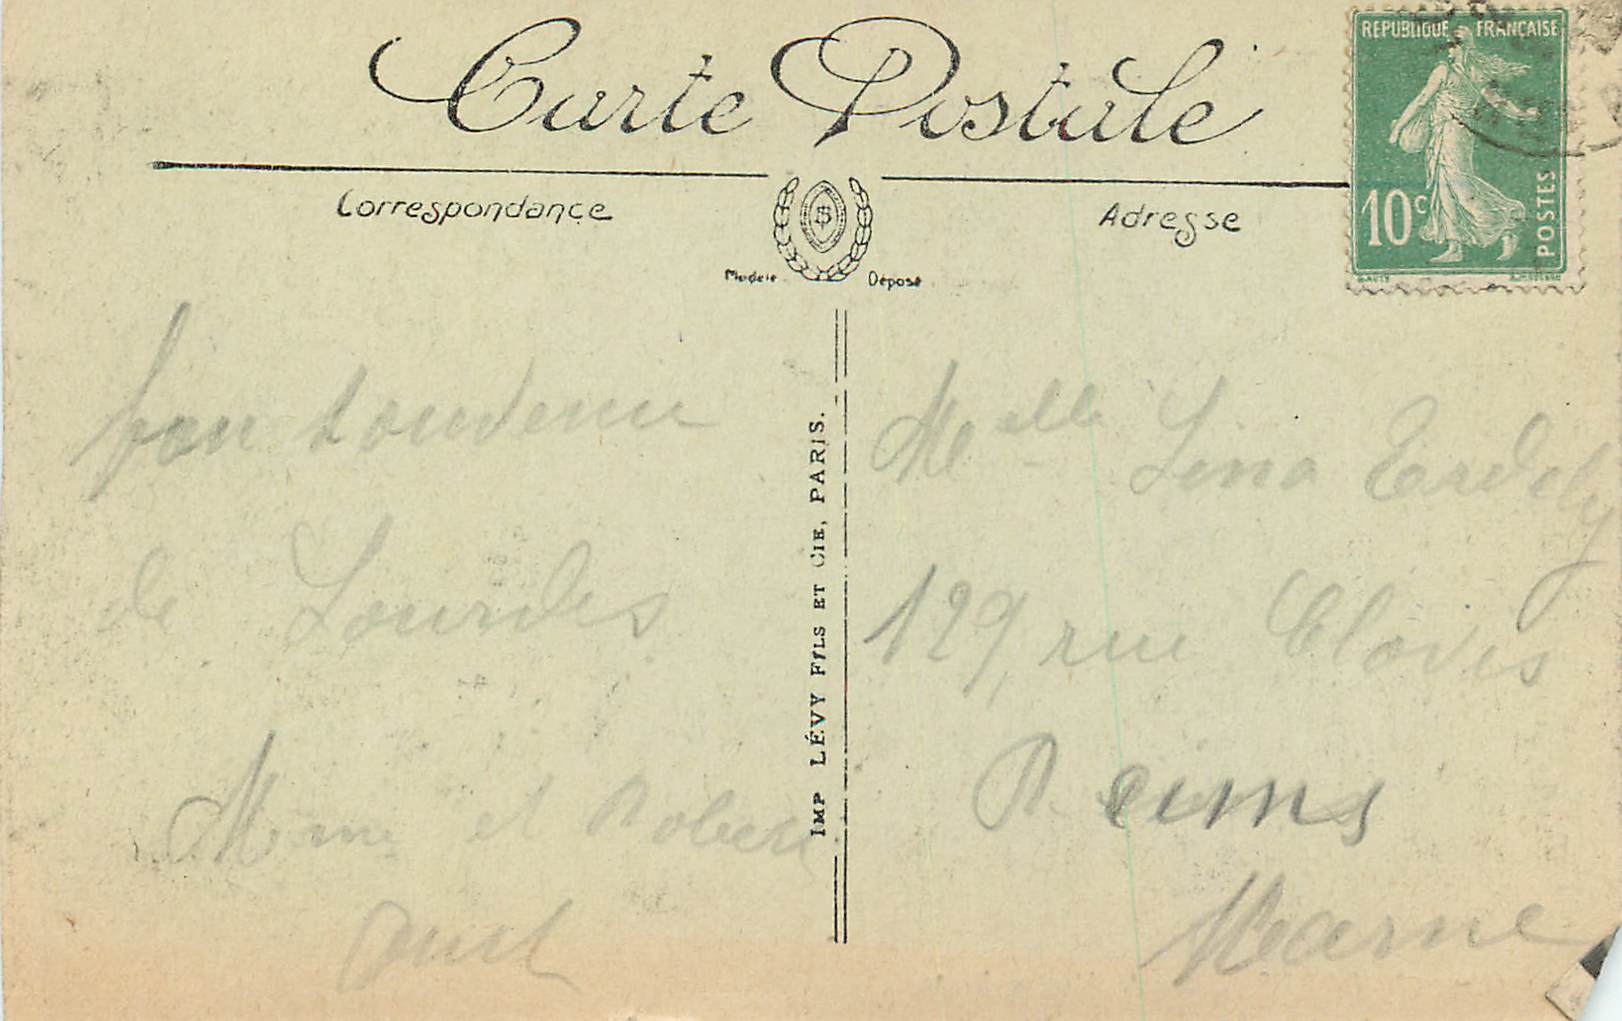 Carte Postale
REPUBLIQUE FRANÇAISE
10c
POSTES
Correspondance
Adresse
Modèle Déposé
bon souvenir
de Lourdes
Mme et Robert
IMP LÉVY FILS ET CIE, PARIS.
Melle Lina Erdely
129, rue Clovis
Reims
Marne